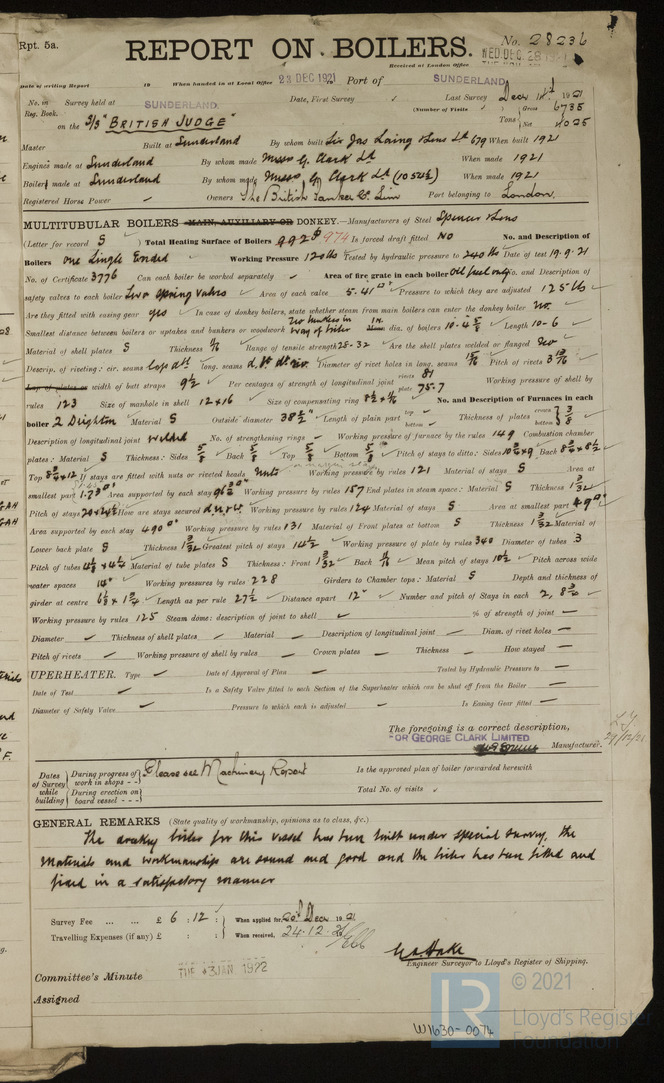 Rpt. 5a.
REPORT ON BOILERS.
No. 28236
Received at London Office WED. DEC. 28 1921
Date of writing Report 19 When handed in at Local Office 23 DEC 1921 Port of SUNDERLAND
No. in Survey held at SUNDERLAND. Date, First Survey Last Survey Decr 19 21
Reg. Book. (Number of Visits) Gross 6735
on the S/S "BRITISH JUDGE" Tons Net 4025
Master Built at Sunderland By whom built Sir Jas Laing & Sons Ld 679 When built 1921
Engines made at Sunderland By whom made Messrs G. Clark Ld When made 1921
Boilers made at Sunderland By whom made Messrs G. Clark Ld (1054½) When made 1921
Registered Horse Power Owners The British Tanker Co Lim Port belonging to London.
MULTITUBULAR BOILERS MAIN, AUXILIARY OR DONKEY.—Manufacturers of Steel Spencer & Sons
(Letter for record S) Total Heating Surface of Boilers 992 974 Is forced draft fitted No No. and Description of
Boilers One Single Ended Working Pressure 120 lbs Tested by hydraulic pressure to 240 lbs Date of test 19.9.21
No. of Certificate 3776 Can each boiler be worked separately Area of fire grate in each boiler Oil fuel only No. and Description of
safety valves to each boiler Two Spring Valves Area of each valve 5.41 □" Pressure to which they are adjusted 125 lb
Are they fitted with easing gear yes In case of donkey boilers, state whether steam from main boilers can enter the donkey boiler No.
Smallest distance between boilers or uptakes and bunkers or woodwork No bunkers in way of boiler dia. of boilers 10-4⅝ Length 10-6
Material of shell plates S Thickness Range of tensile strength 28-32 Are the shell plates welded or flanged No
Descrip. of riveting: cir. seams lap long. seams Diameter of rivet holes in long. seams 15/16 Pitch of rivets
Lap of plates or width of butt straps 9½ Per centages of strength of longitudinal joint rivets 81 plate 75.7 Working pressure of shell by
rules 123 Size of manhole in shell 12 x 16 Size of compensating ring No. and Description of Furnaces in each
boiler 2 Deighton Material S Outside diameter 38½" Length of plain part top bottom Thickness of plates crown bottom 3/8
Description of longitudinal joint welded No. of strengthening rings Working pressure of furnace by the rules 149 Combustion chamber
plates: Material S Thickness: Sides 5/8 Back 5/8 Top 5/8 Bottom Pitch of stays to ditto: Sides Back
Top If stays are fitted with nuts or riveted heads Nuts Working pressure by rules 121 Material of stays S Area at
smallest part Area supported by each stay Working pressure by rules 157 End plates in steam space: Material S Thickness 1 3/32
Pitch of stays How are stays secured Working pressure by rules 124 Material of stays S Area at smallest part
Area supported by each stay 490 □" Working pressure by rules 131 Material of Front plates at bottom S Thickness 1 3/32 Material of
Lower back plate S Thickness 1 3/32 Greatest pitch of stays 14½ Working pressure of plate by rules 340 Diameter of tubes 3
Pitch of tubes Material of tube plates S Thickness: Front 1 3/32 Back 11/16 Mean pitch of stays 10½ Pitch across wide
water spaces 14" Working pressures by rules 228 Girders to Chamber tops: Material S Depth and thickness of
girder at centre Length as per rule 27½ Distance apart 12" Number and pitch of Stays in each
Working pressure by rules 125 Steam dome: description of joint to shell % of strength of joint
Diameter Thickness of shell plates Material Description of longitudinal joint Diam. of rivet holes
Pitch of rivets Working pressure of shell by rules Crown plates Thickness How stayed
UPERHEATER. Type Date of Approval of Plan Tested by Hydraulic Pressure to
Date of Test Is a Safety Valve fitted to each Section of the Superheater which can be shut off from the Boiler
Diameter of Safety Valve Pressure to which each is adjusted Is Easing Gear fitted
The foregoing is a correct description,
OR GEORGE CLARK LIMITED
Manufacturer.
Dates of Survey while building During progress of work in shops - - Please see Machinery Report Is the approved plan of boiler forwarded herewith
During erection on board vessel - - - Total No. of visits
GENERAL REMARKS (State quality of workmanship, opinions as to class, &c.)
The donkey boiler for this vessel has been built under special survey, the
materials and workmanship are sound and good and the boiler has been fitted and
fixed in a satisfactory manner
Survey Fee ... ... £ 6 : 12 : When applied for, 20th Decr 19 21
Travelling Expenses (if any) £ : : When received, 24.12.21
Engineer Surveyor to Lloyd's Register of Shipping.
Committee's Minute TUE 3 JAN 1922
Assigned
W1630-0074
LR © 2021
Lloyd's Register
Foundation